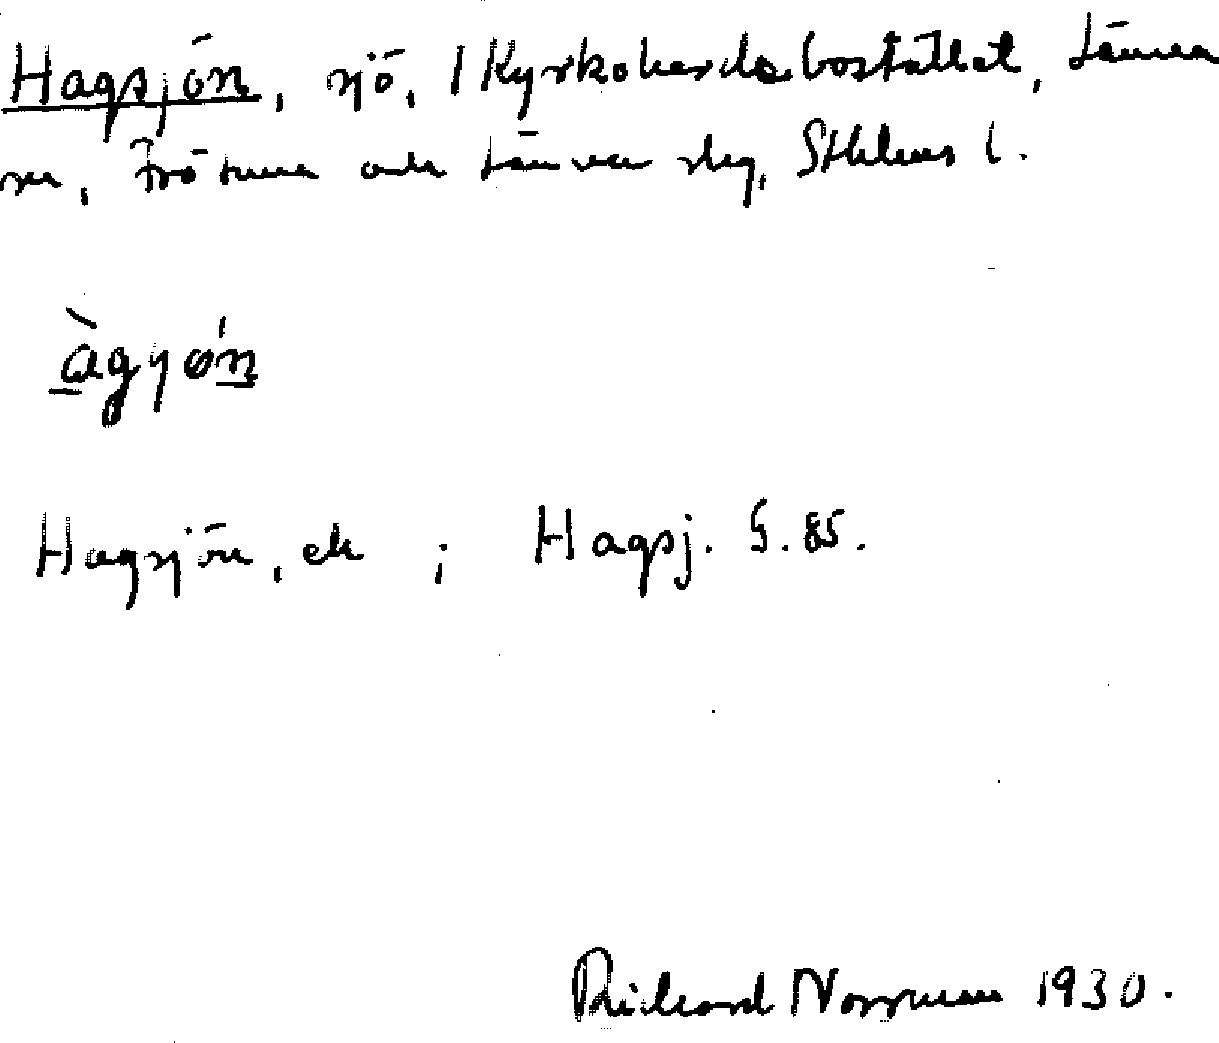 Hagsjön, sjö, / Kyrkoherdebostället, Länna
sn, Frötuna och Länna skg, Sthlms l.
àgʃǿn
Hagsjön, ek ; Hagsj. G. 85.
Richard Norrman 1930.